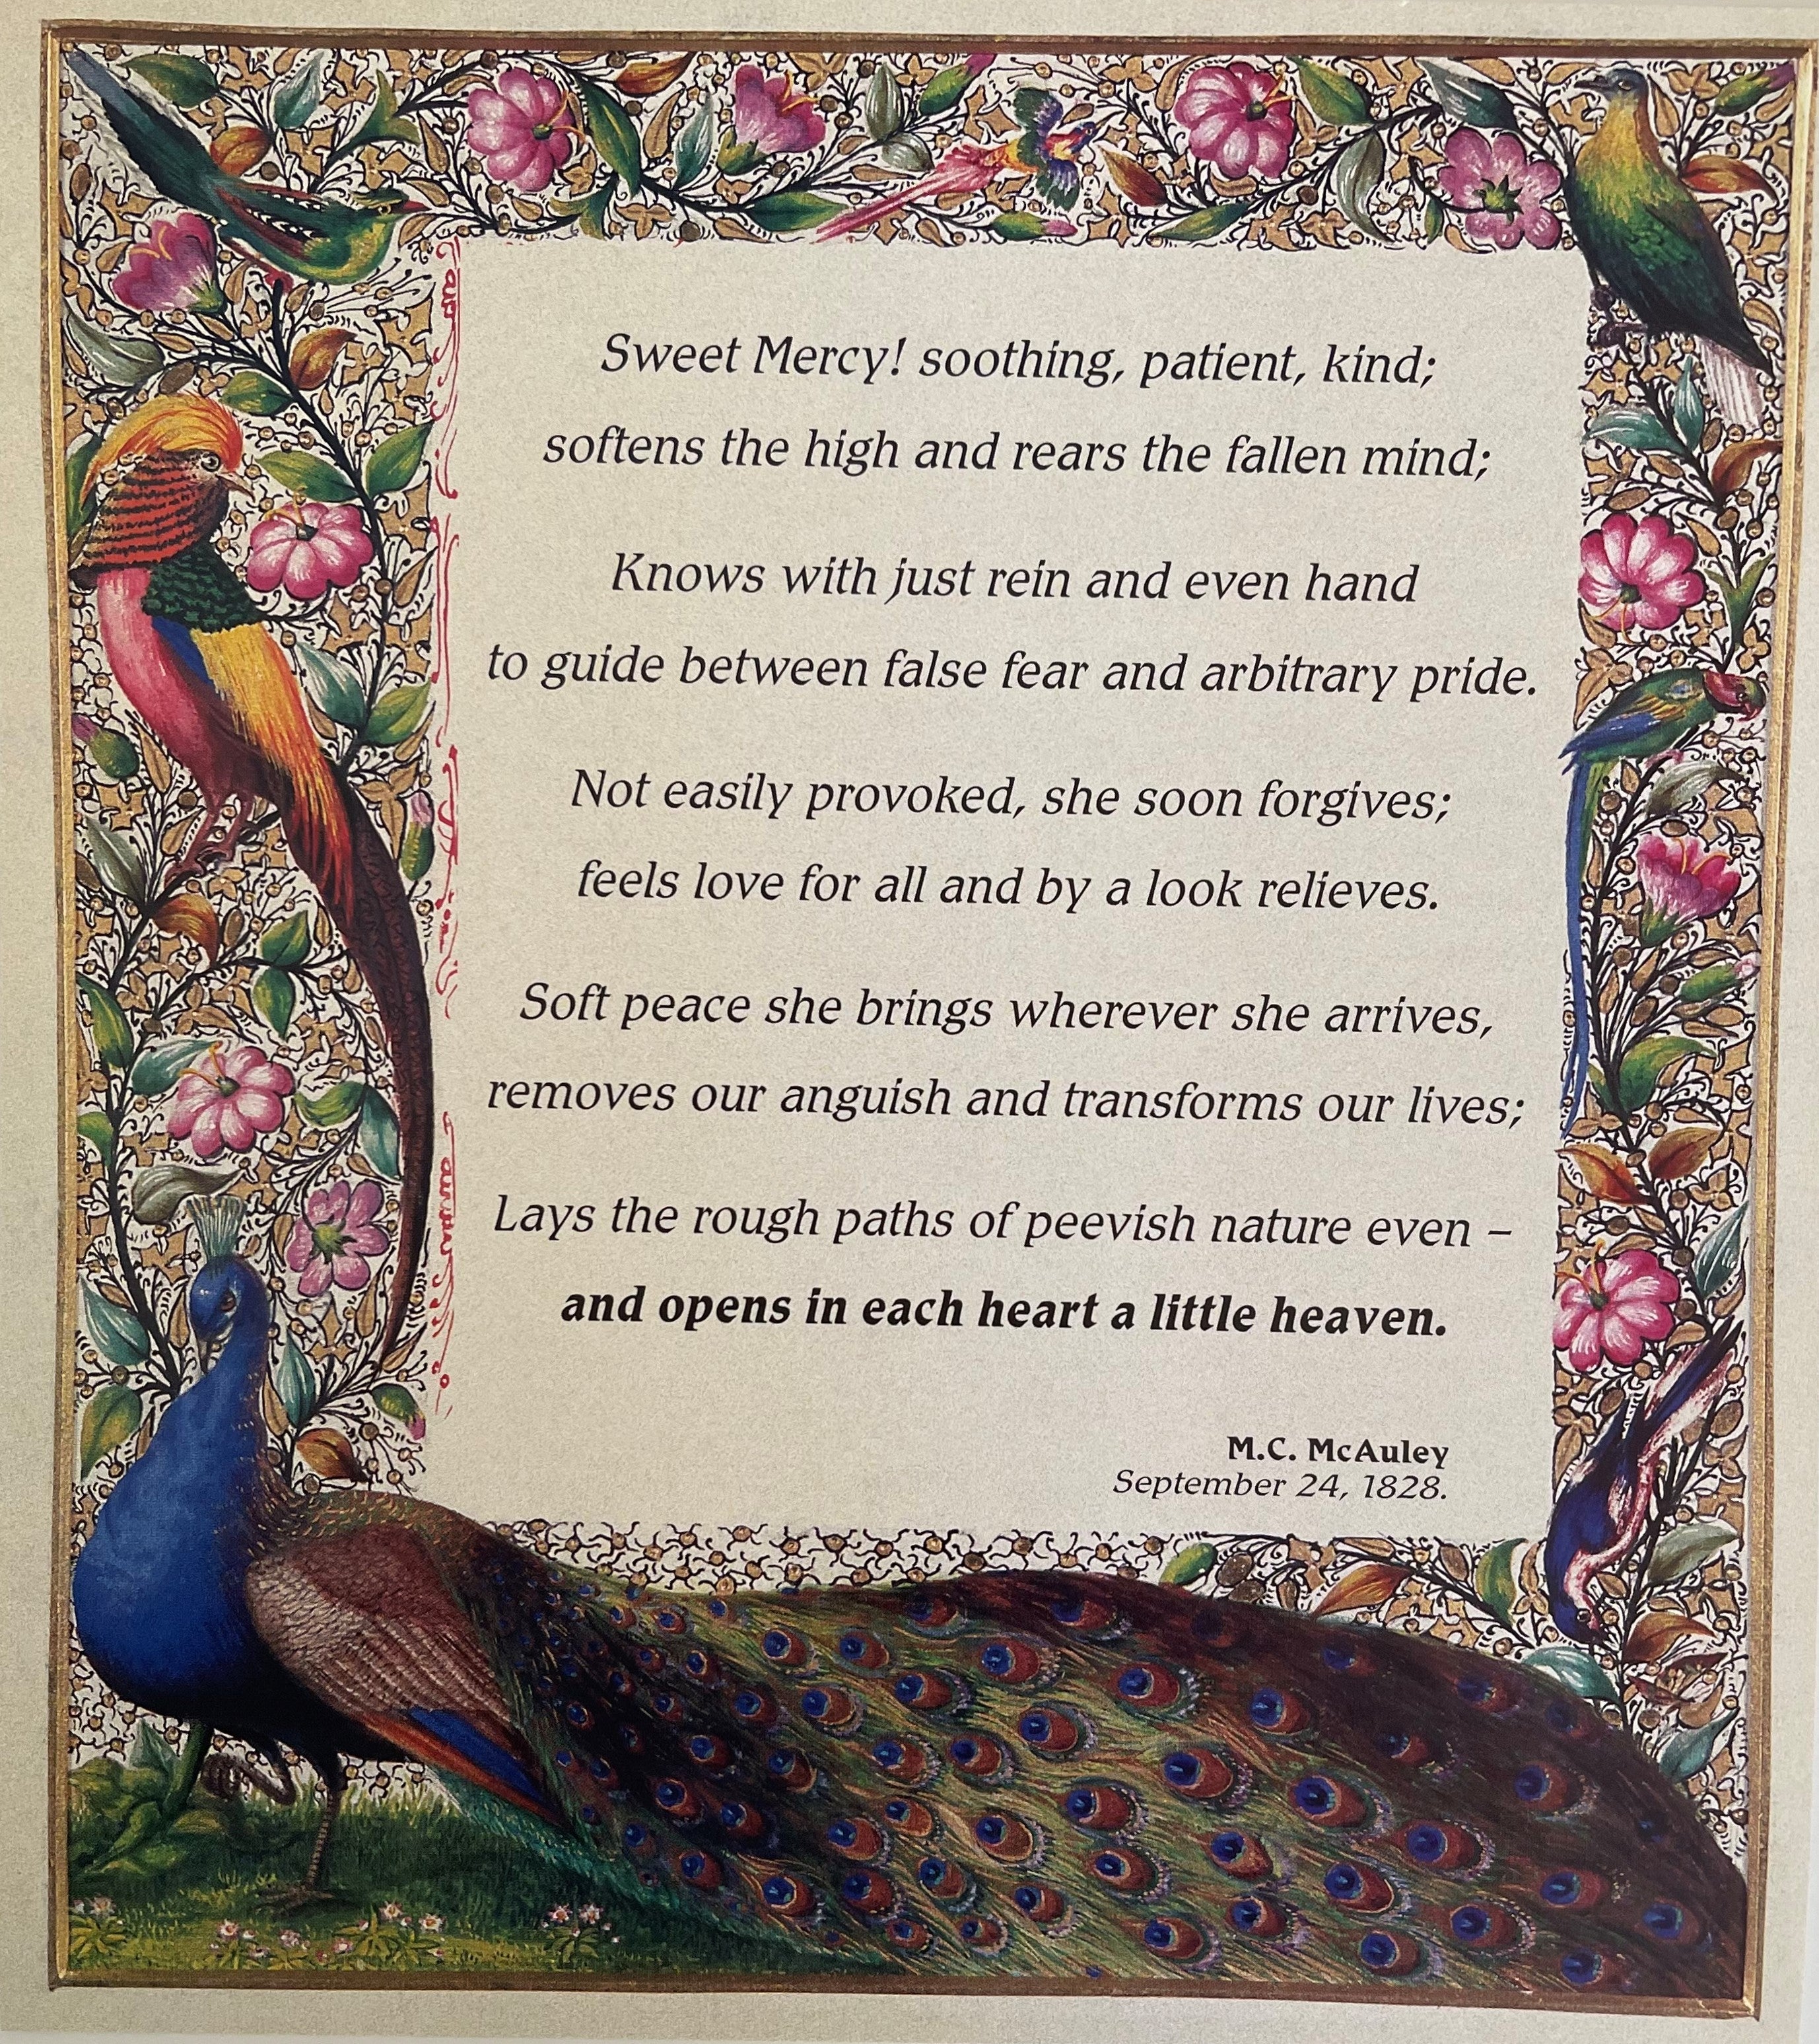 Sweet Mercy! soothing, patient, kind;
softens the high and rears the fallen mind;
Knows with just rein and even hand
to guide between false fear and arbitrary pride.
Not easily provoked, she soon forgives;
feels love for all and by a look relieves.
Soft peace she brings wherever she arrives,
removes our anguish and transforms our lives;
Lays the rough paths of peevish nature even –
and opens in each heart a little heaven.
M.C. McAuley
September 24, 1828.